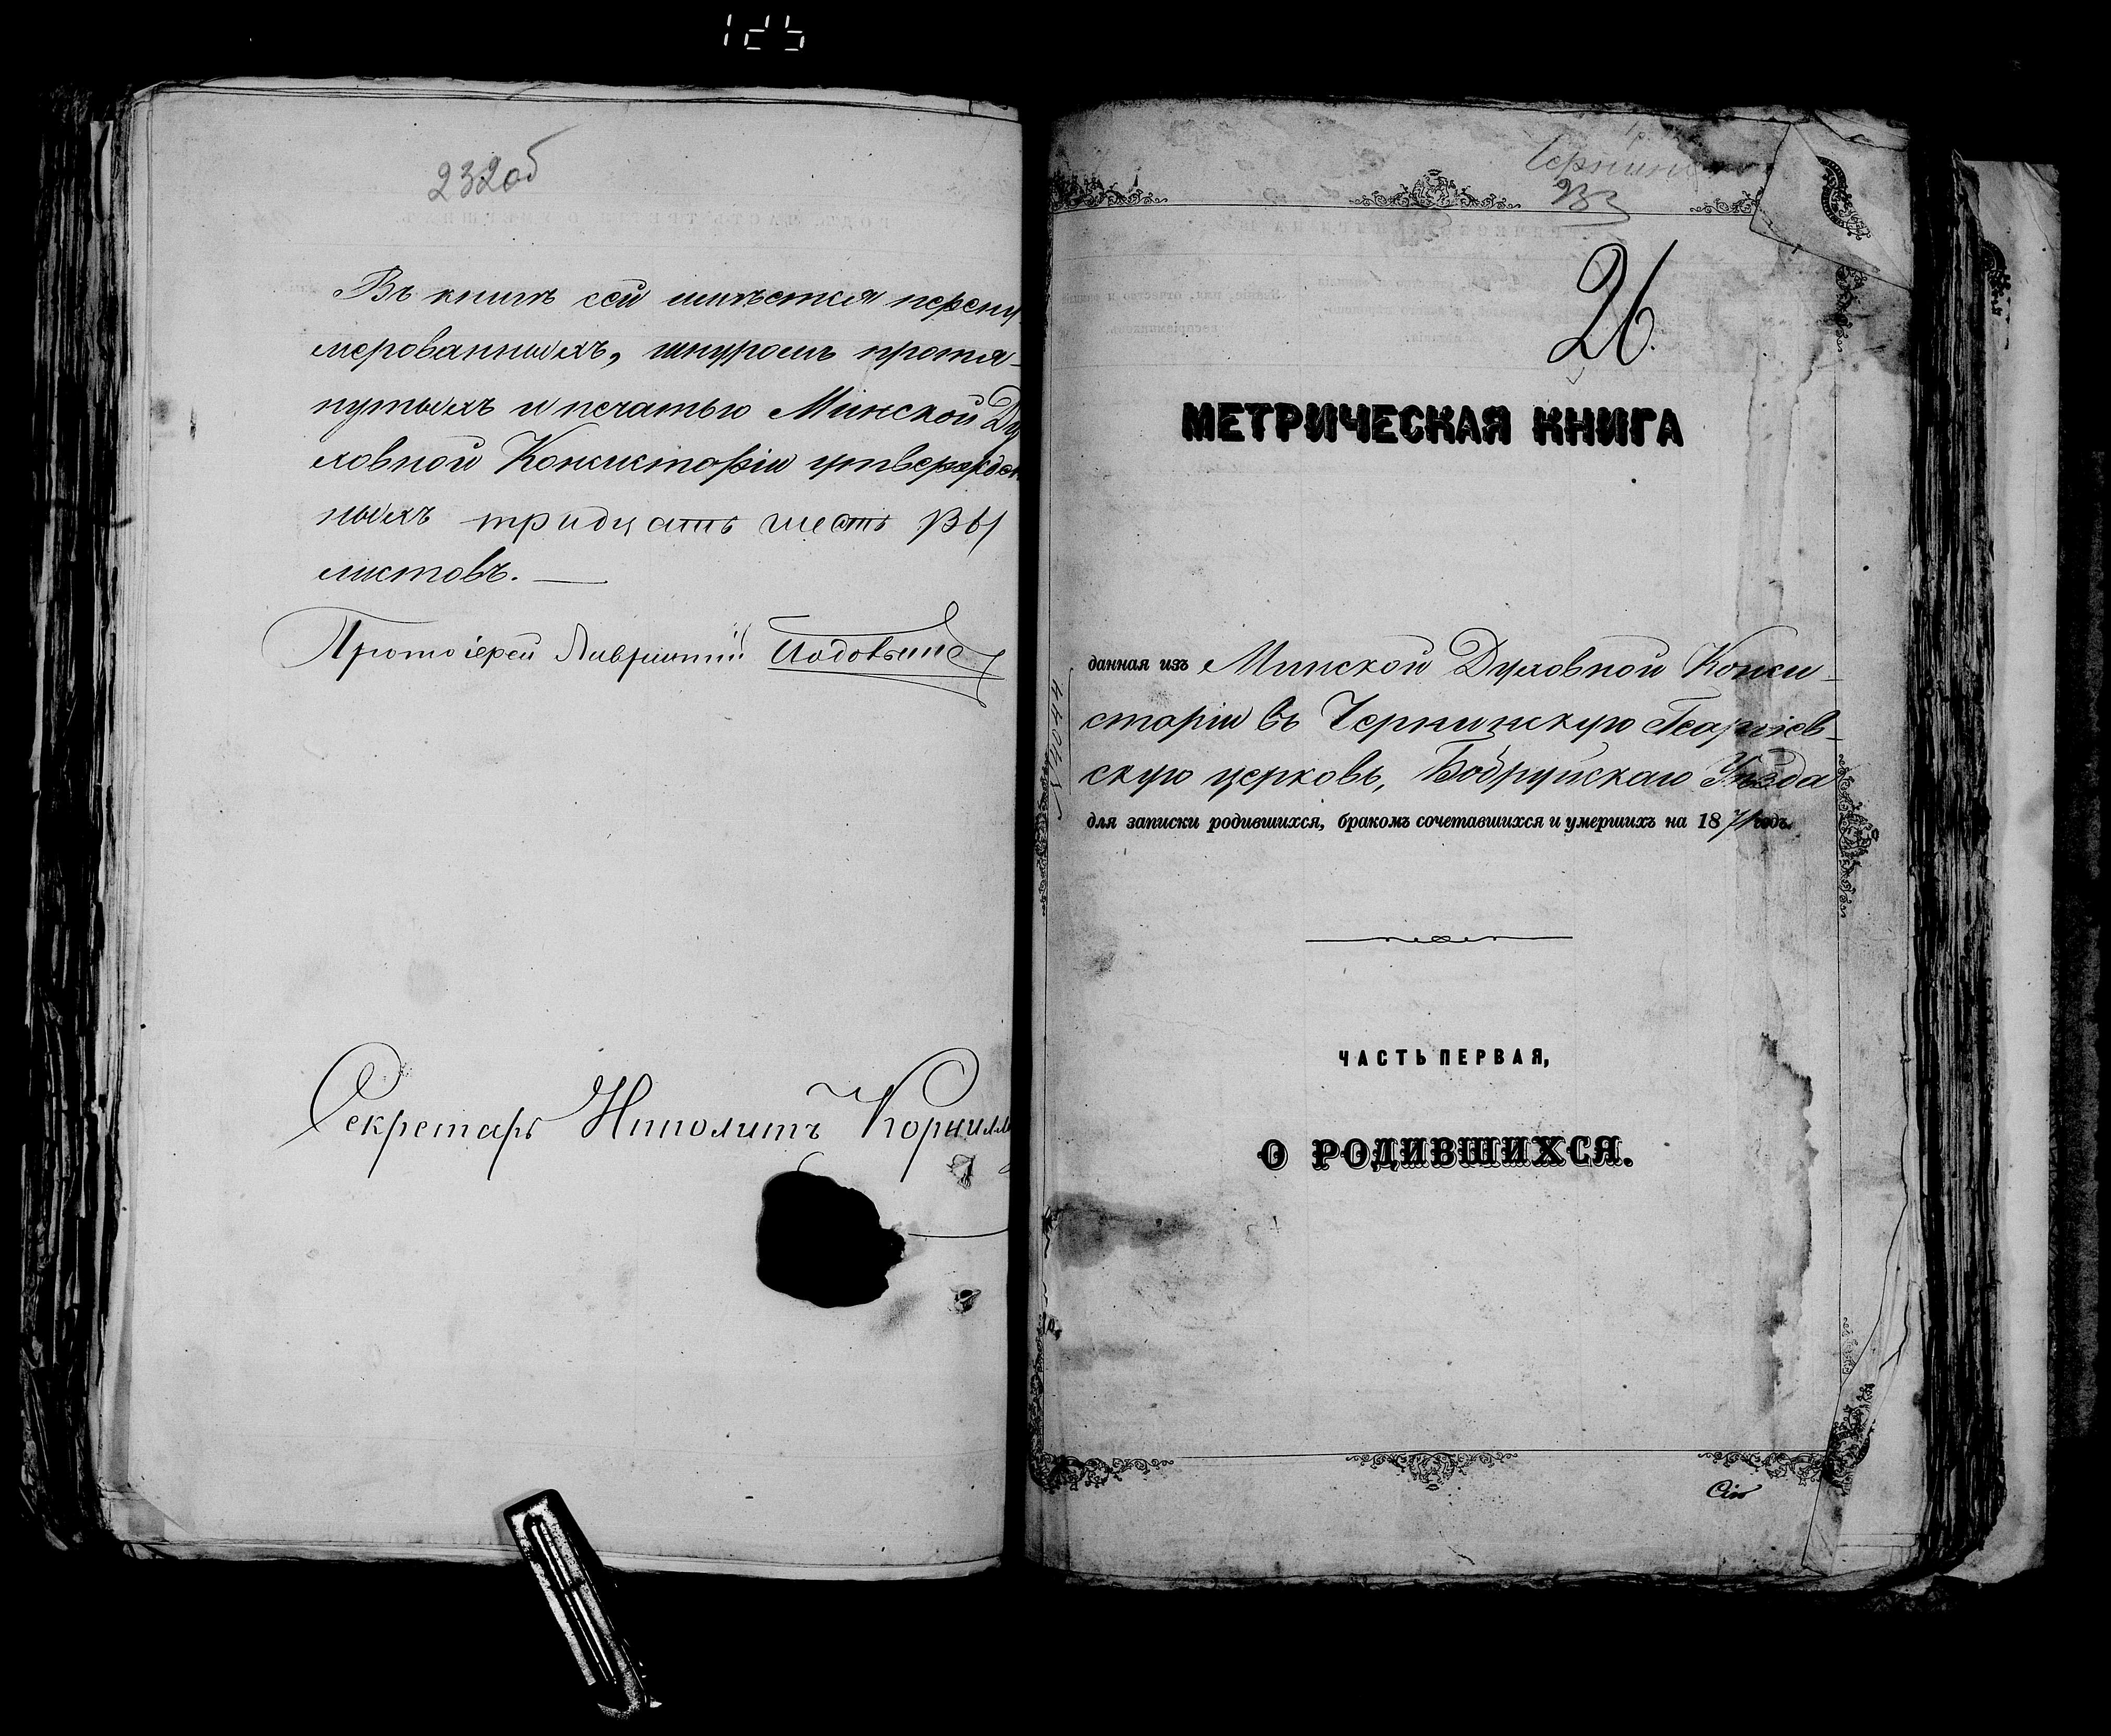 232об
Въ книгѣ сей имѣется перену
мерованныхъ, шнуромъ протя-
нутыхъ и печатью Минской Ду
ховной Консисторіи утвержден
ныхъ тридцать шесть
листовъ. —
Протоіерей
Секретарь Ипполитъ Корнил
233
26.
МЕТРИЧЕСКАЯ КНИГА
данная изъ Минской Духовной Конси-
сторіи въ Чернинскую Георгіев-
скую церковь, Бобруйскаго Уѣзда
для записки родившихся, бракомъ сочетавшихся и умершихъ на 1871 годъ.
ЧАСТЬ ПЕРВАЯ,
О РОДИВШИХСЯ.